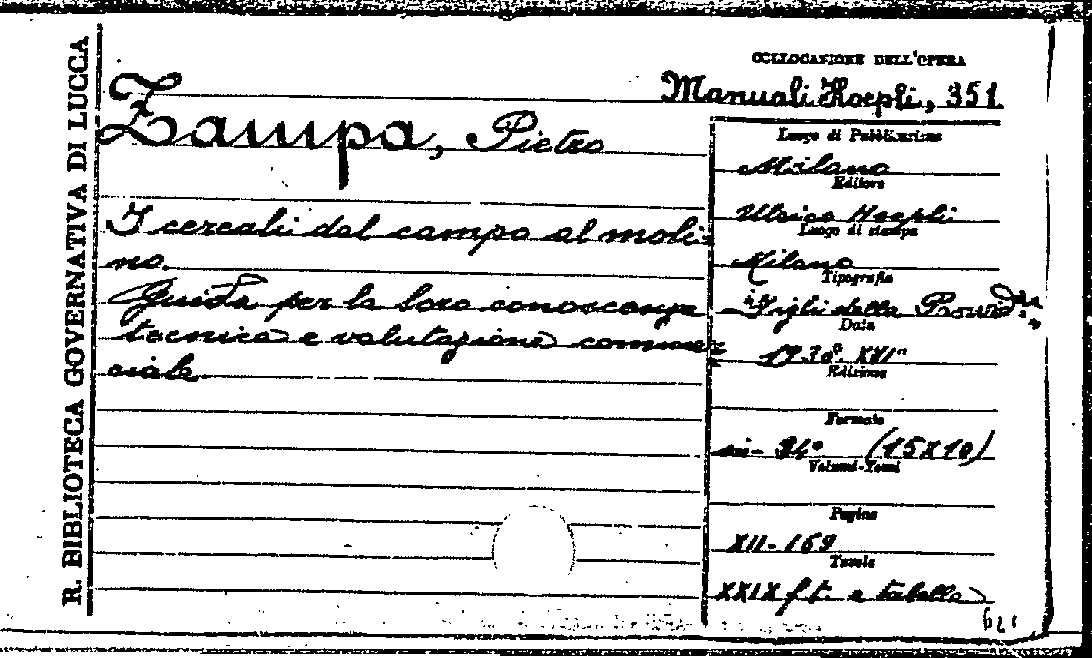 R. BIBLIOTECA GOVERNATIVA DI LUCCA
COLLOCAZIONE DELL'OPERA
Manuali Hoepli, 351.
Zampa, Pietro
I cereali dal campo al moli=
no.
Guida per la loro conoscenza
tecnica e valutazione commer=
ciale.
Luogo di Pubblicazione
Milano
Editore
Ulrico Hoepli
Luogo di stampa
Milano
Tipografia
"Figli della Provvid.za"
Data
1938. XVI°
Edizione
Formato
in- 24° (15X10)
Volumi-Tomi
Pagine
XII-169
Tavole
XXIX f.t. e tabelle